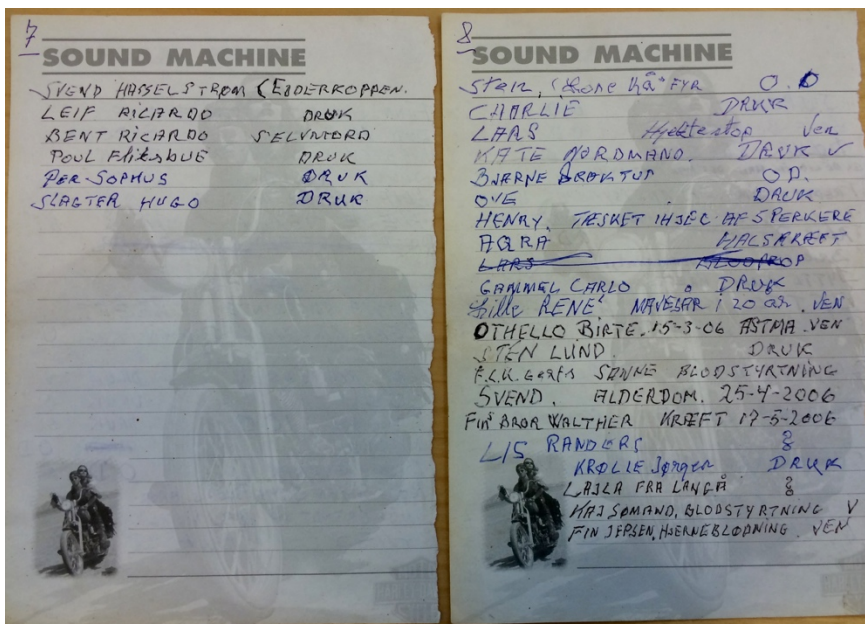 7
SOUND MACHINE
SVEND HASSELSTRØM (EDDERKOPPEN.
LEIF RICARDO DRUK
BENT RICARDO SELVMORD
POUL DRUK
PER SOPHUS DRUK
SLAGTER HUGO DRUK
8
SOUND MACHINE
Sten, FYR O.D
CHARLIE DRUK
LARS Hjertestop Ven
KATE NORDMAND. DRUK V
BJARNE O.D.
OVE . DRUK
HENRY. TÆSKET IHJEL AF SPERKERE
AQRA HALSKRÆFT
LARS BLODPROP
GAMMEL CARLO . DRUK
Lille RENE MAVESAR I 20 ÅR. VEN
OTHELLO BIRTE. 15-3-06 ASTMA. VEN
STEN LUND. DRUK
F.L.K. SANNE BLODSTYRTNING
SVEND. ALDERDOM. 25-4-2006
FIN BROR WALTHER KRÆFT 17-5-2006
LIS RANDERS ?
KRØLLE Jørgen DRUK
LAJLA FRA LANGÅ ?
KAJ SØMAND, BLODSTYRTNING V
FIN JEPSEN, HJERNEBLØDNING. VEN